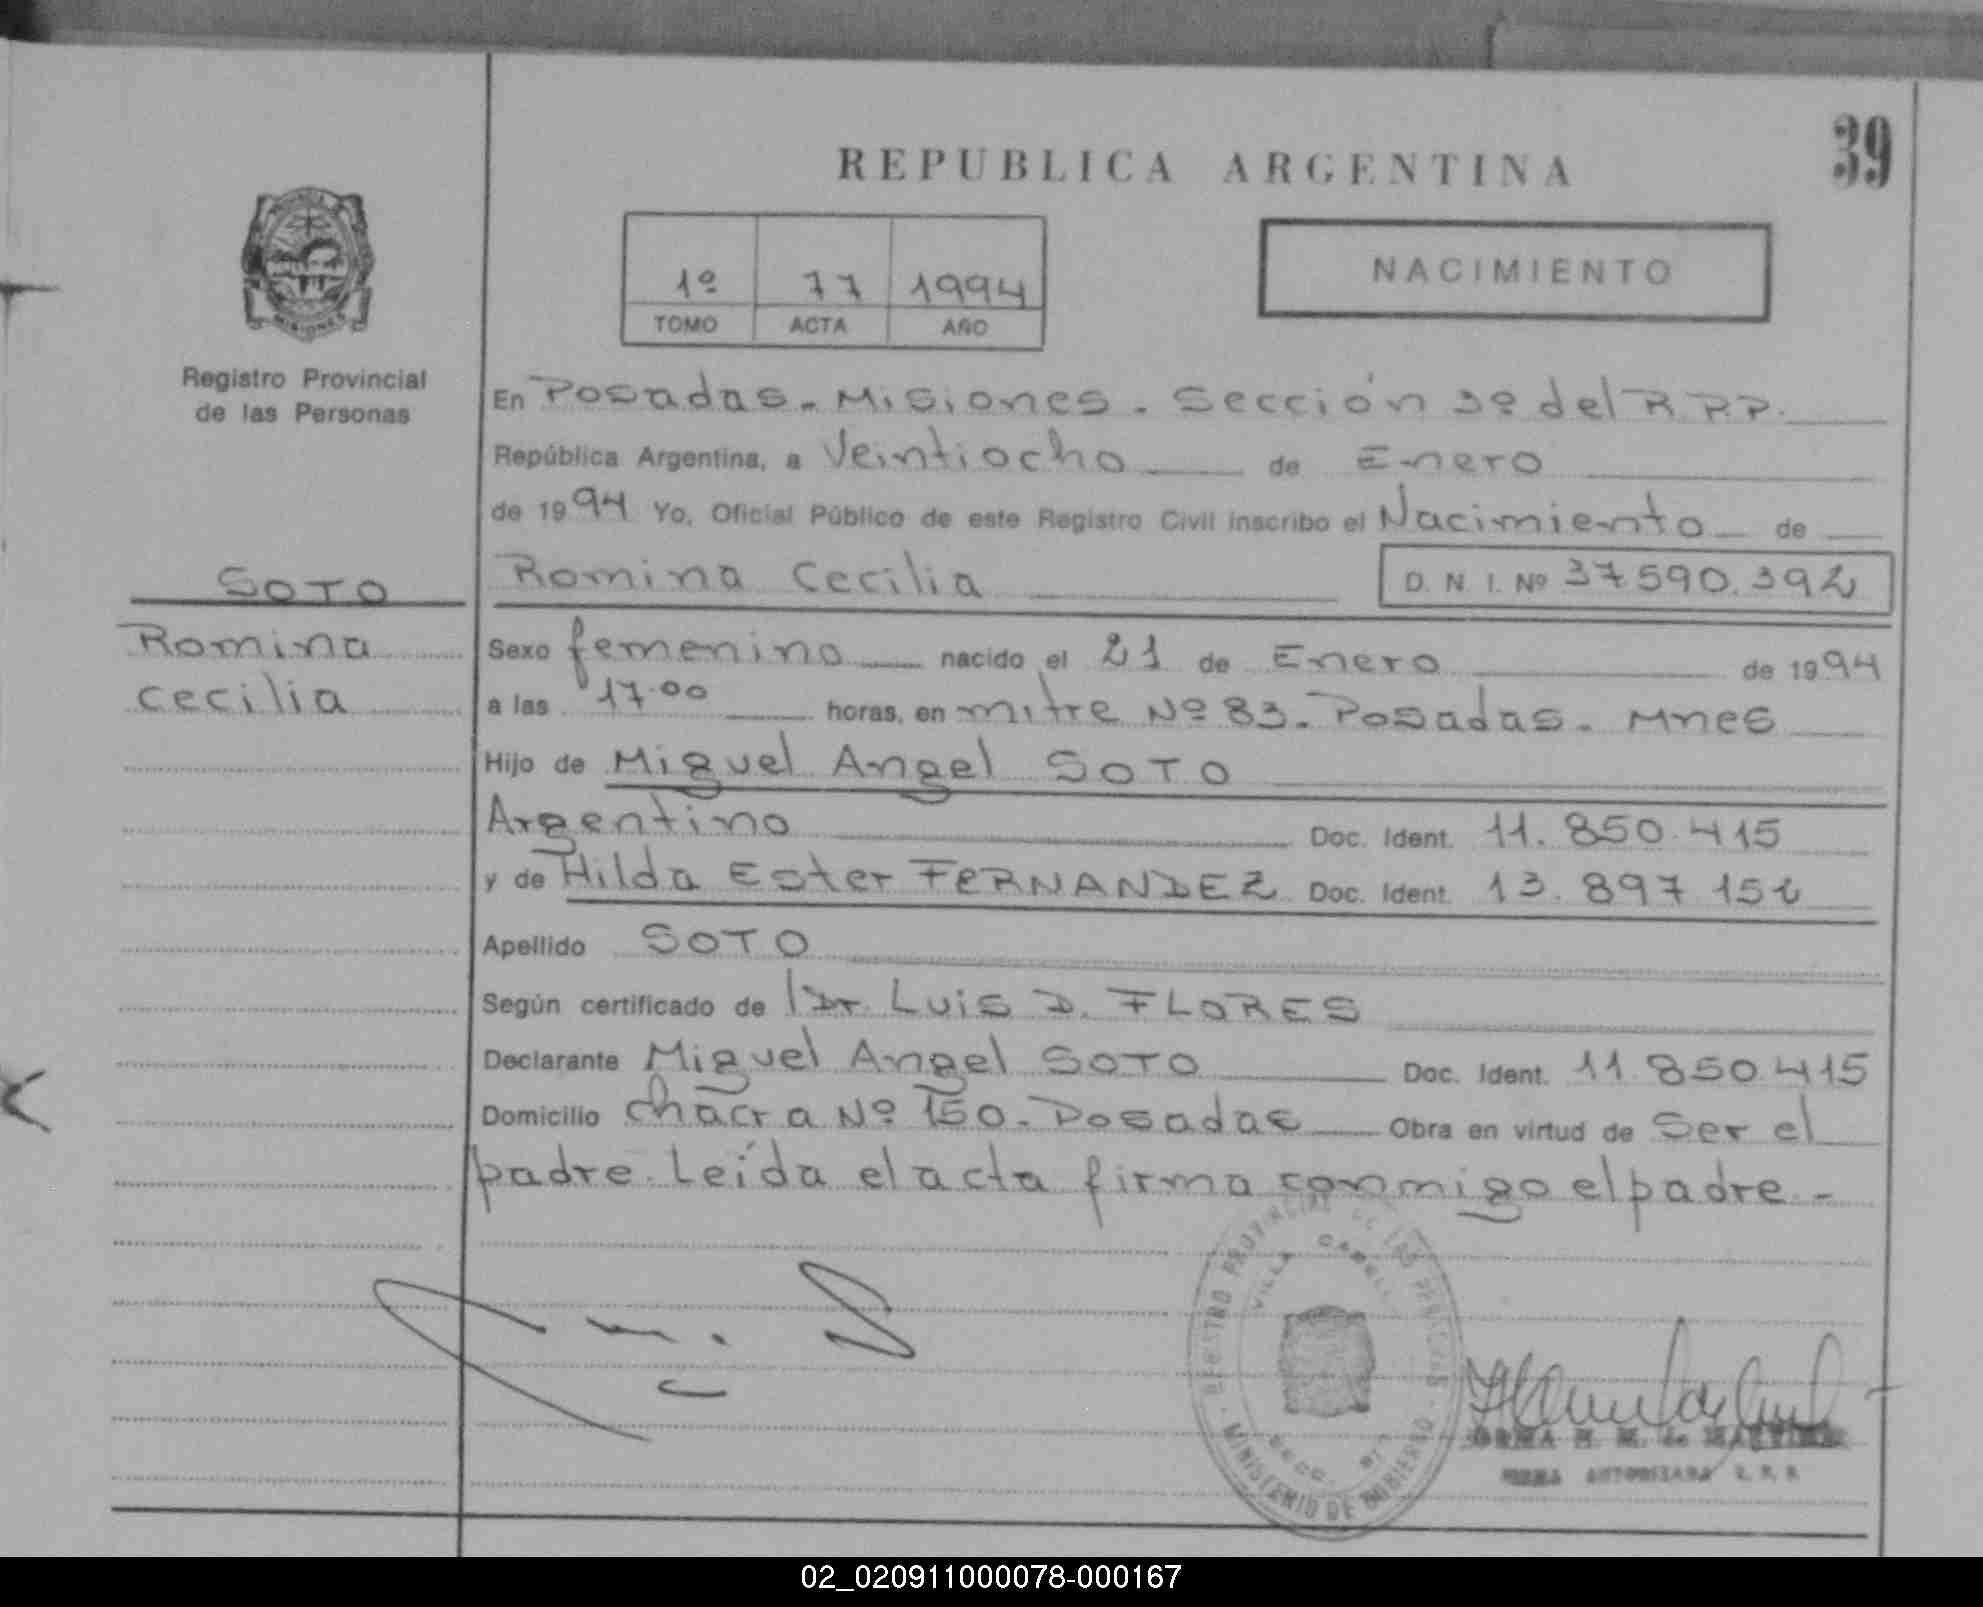 39
REPUBLICA ARGENTINA
1º 77 1994
TOMO ACTA AÑO
NACIMIENTO
MISIONES
Registro Provincial
de las Personas
En Posadas - Misiones. Sección 3º del R.P.P.
República Argentina, a Veintiocho de Enero
de 1994 Yo, Oficial Público de este Registro Civil inscribo el Nacimiento de
SOTO
Romina Cecilia D. N. I. Nº 37590.392
Romina
cecilia
Sexo femenino nacido el 21 de Enero de 1994
a las 17.00 horas, en mitre Nº 83. Posadas - Mnes
Hijo de Miguel Angel SOTO
Argentino Doc. Ident. 11.850.415
y de Hilda Ester FERNANDEZ Doc. Ident. 13.897 152
Apellido SOTO
Según certificado de Dr. Luis D. FLORES
Declarante Miguel Angel SOTO Doc. Ident. 11.850.415
Domicilio chacra Nº 150 - Posadas Obra en virtud de Ser el
padre. Leída el acta firma conmigo el padre -
REGISTRO PROVINCIAL DE LAS PERSONAS
VILLA CABELLO
MINISTERIO DE GOBIERNO
FIRMA AUTORIZADA R. P. P.
02_020911000078-000167